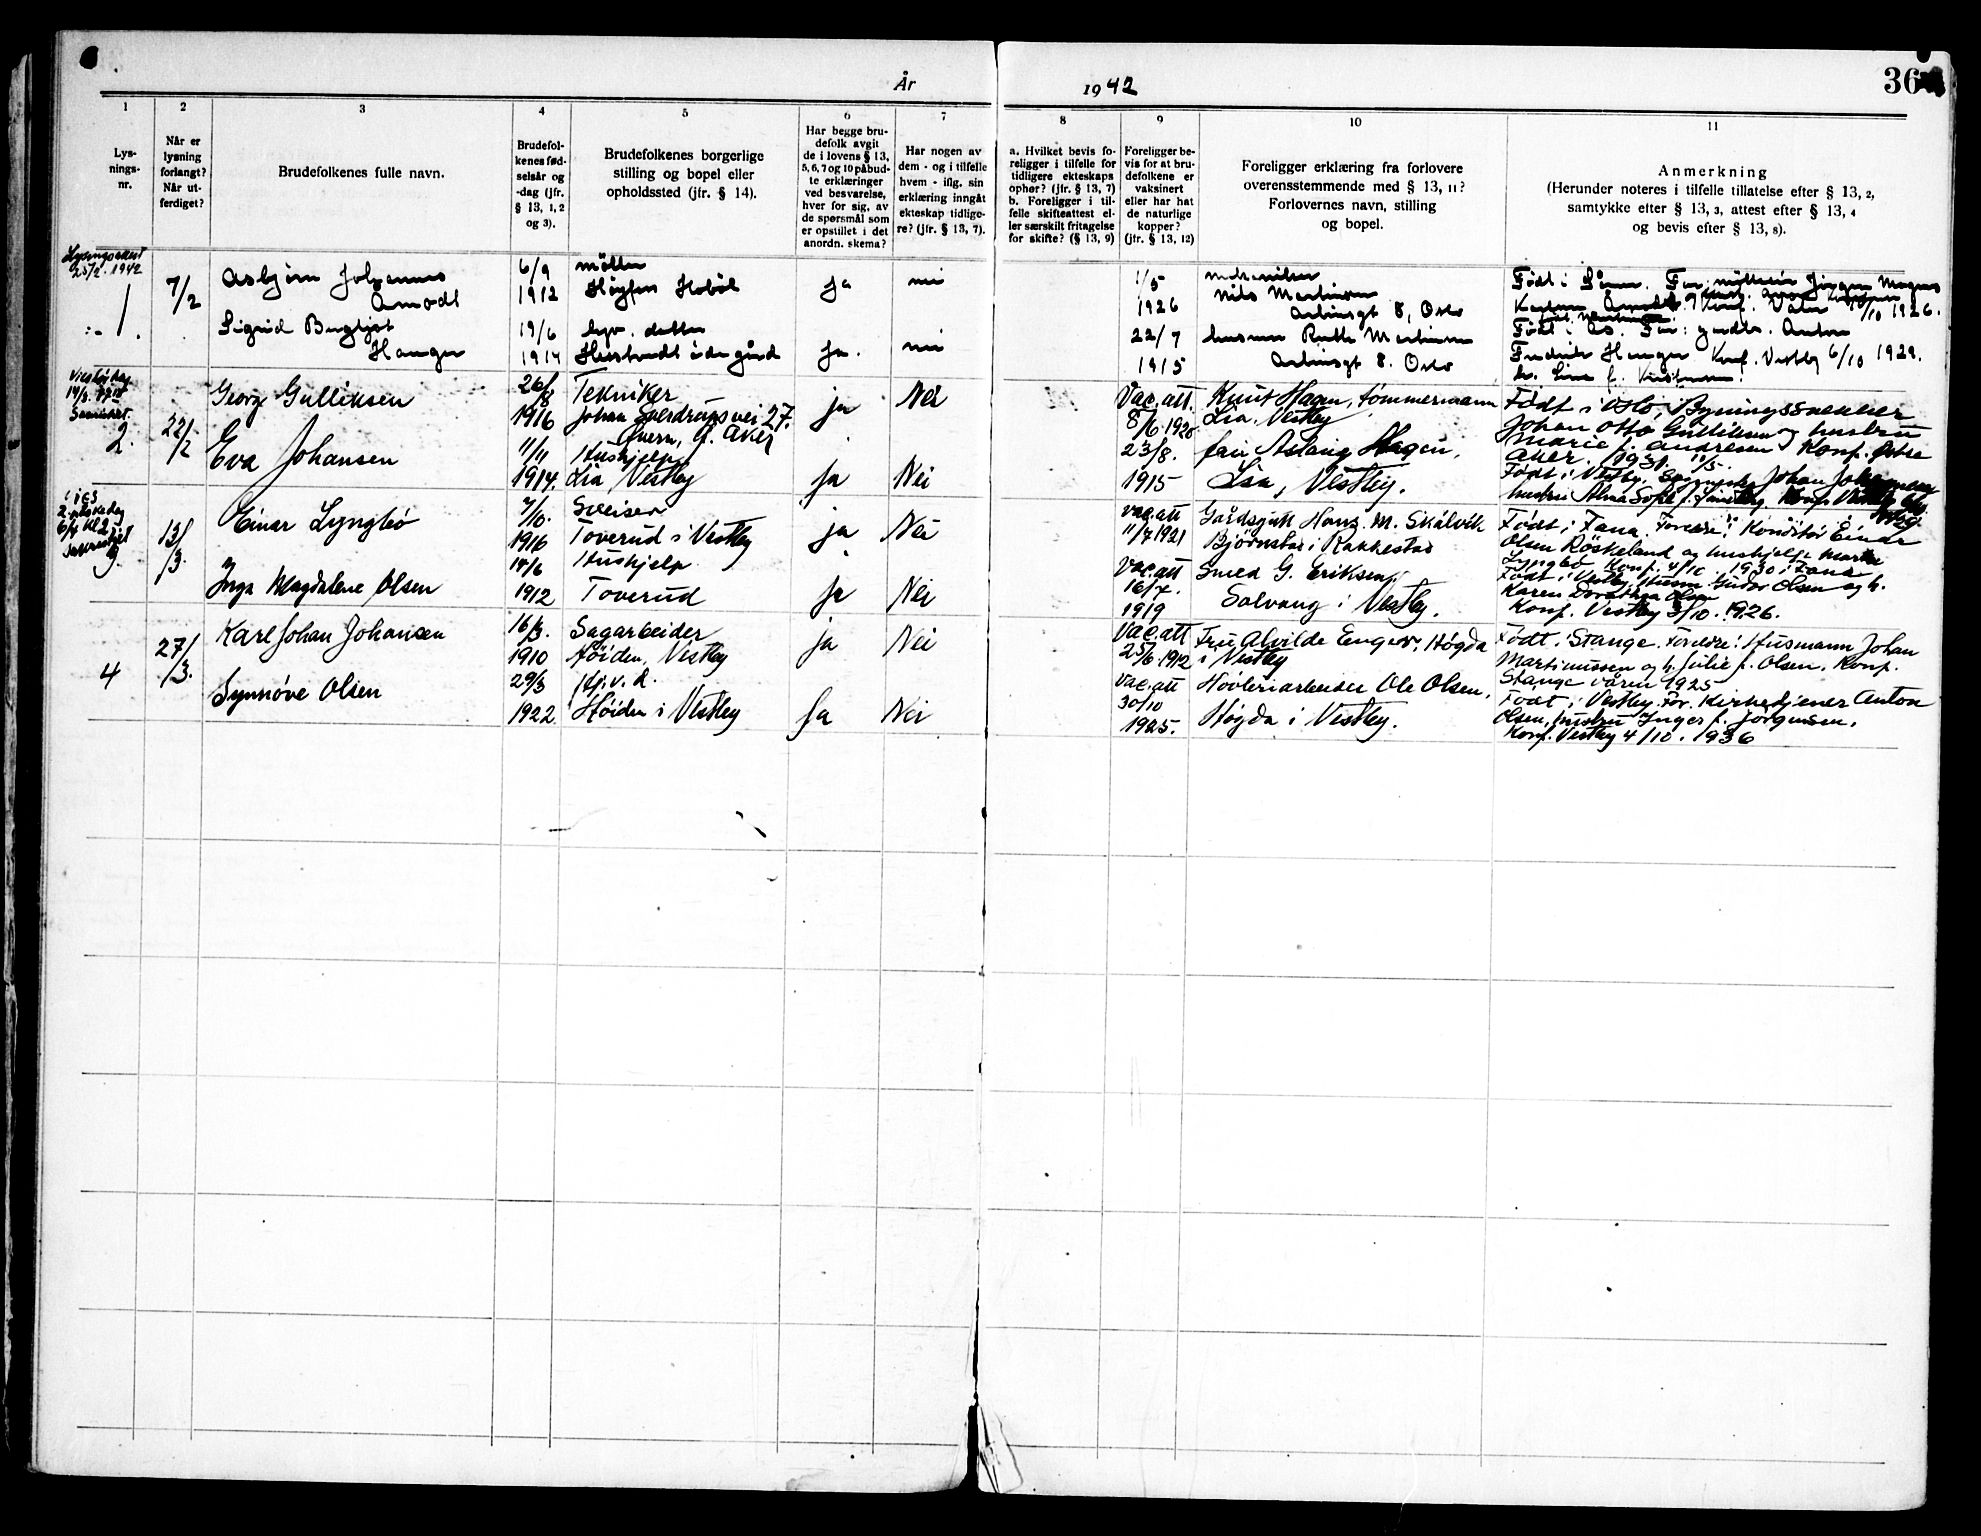 År 1942
36
1
2
3
4
5
6
7
8
9
10
11
Lys-
nings-
nr.
Når er
lysning
forlangt?
Når ut-
ferdiget?
Brudefolkenes fulle navn.
Brudefol-
kenes fød-
selsår og
-dag (jfr.
§ 13, 1, 2
og 3).
Brudefolkenes borgerlige
stilling og bopel eller
opholdssted (jfr. § 14).
Har begge bru-
defolk avgit
de i lovens § 13,
5, 6, 7 og 10 påbud-
te erklæringer
ved besvarelse,
hver for sig, av
de spørsmål som
er opstillet i det
anordn. skema?
Har nogen av
dem - og i tilfelle
hvem - iflg. sin
erklæring inngåt
ekteskap tidlige-
re? (jfr. § 13, 7).
a. Hvilket bevis fo-
religger i tilfelle for
tidligere ekteskaps
ophør? (jfr. § 13, 7)
b. Foreligger i til-
felle skifteattest el-
ler særskilt fritagelse
for skifte? (§ 13, 9)
Foreligger be-
vis for at bru-
defolkene er
vaksinert
eller har hat
de naturlige
kopper?
(jfr. § 13, 12)
Foreligger erklæring fra forlovere
overensstemmende med § 13, 11?
Forlovernes navn, stilling
og bopel.
Anmerkning
(Herunder noteres i tilfelle tillatelse efter § 13, 2,
samtykke efter § 13, 3, attest efter § 13, 4
og bevis efter § 13, 8).
Lysingsattest
25/2. 1942
1.
7/2
Asbjørn Johannes
Amodt
6/9
1912
møller
Høgfoss Hobøl
ja
nei
1/5
1926
Nils Martinsen
Arbinsgt 8, Oslo
Født i Far: møller Jørgen Magnus
Konf. Våler 1926.
Sigrid Bergljot
Hauger
19/6
1914
hjv. datter
gård
Ja.
nei
22/7
1915
Ruth Martinsen
Arbinsgt 8. Oslo
Født i Ås. Far: gårdbr. Anton
Fredrik Hauger Konf. Vestby 6/10 1929.
2.
22/2
Georg Gulliksen
26/8
1916
Tekniker
Johan Sverdrupsvei 27.
Ø. Aker
ja
Nei
Vac. att.
8/6.1920
Knut Hagen, tømmermann
Lia, Vestby
Født i Oslo, Bygningssnekker
Johan Otto Gulliksen og hustru
Marie f. Andresen Konf. Østre
Aker. 1931.
Eva Johansen
11/11
1914.
Hushjelp
Lia Vestby
ja
Nei
23/8.
1915
Aslaug Hagen,
Lia, Vestby.
Født i Vestby, Johan Johannesen
hustru Alma Sofie f.
13/3.
Einar Lyngbø
7/10.
1916
Sveiser
Toverud i Vestby
ja
Nei
vac. att
11/7 1921
Gårdsgutt Hans. M. Skålvik
Bjørnstad i Rakkestad
Født i Fana. Foreldre: Konditor Einar
Olsen Røskeland og hushjelp Marta
Lyngbø Konf. 4/10. 1930 i Fana
Inga Magdalene Olsen
14/6
1912
Hushjelp
Toverud
ja
Nei
Vac. att
16/7.
1919
Smed G. Eriksen,
Solvang i Vestby.
Født i Vestby Gudor Olsen og h.
Karen Dorothea Olsen
Konf. Vestby 3/10. 1926.
4
27/3.
Karl Johan Johansen
16/3.
1910
Sagarbeider
Høiden, Vestby
ja
Nei
Vac. att
25/6. 1912
Fru Alvilde Enger, Høgda
i Vestby
Født i Stange. Foreldre: Husmann Johan
Martinussen og h. Julie f. Olsen. Konf.
Stange våren 1925
Synnøve Olsen
29/3
1922.
Hj. v. d.
Høiden i Vestby
Ja
Nei
Vac. att
30/10
1925.
Høvleriarbeider Ole Olsen,
Høgda i Vestby.
Født i Vestby For. Kirketjener Anton
Olsen, hustru Inger f. Jørgensen.
Konf. Vestby 4/10. 1936